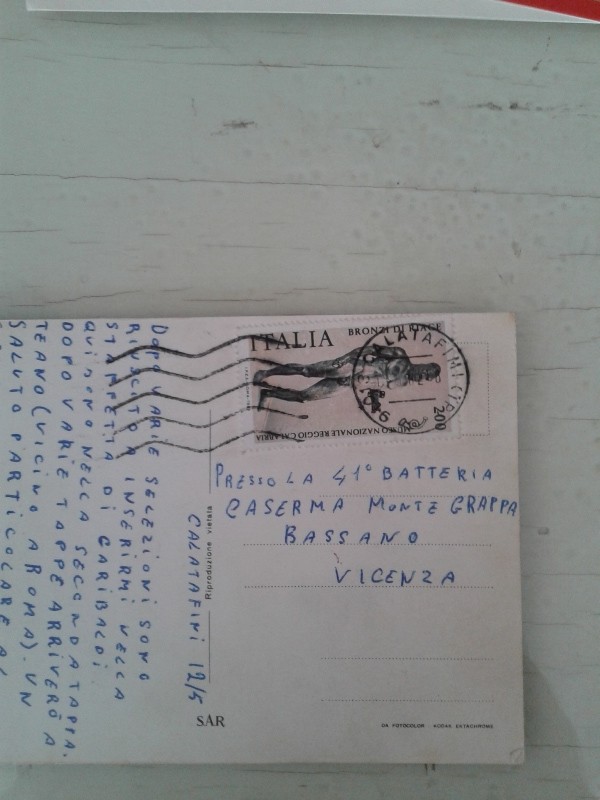 DOPO VARIE SELEZIONI SONO
RIUSCITO A INSERIRMI NELLA
STAFFETTA DI GARIBALDI.
QUI SONO NELLA SECONDA TAPPA.
DOPO VARIE TAPPE ARRIVERÒ A
TEANO (VICINO A ROMA). UN
SALUTO PARTICOLARE AI
CALATAFIMI 12/5
Riproduzione vietata
ITALIA
BRONZI DI RIACE
MUSEO NAZIONALE REGGIO CALABRIA
200
CALATAFIMI (TP)
PRESSO LA 41° BATTERIA
CASERMA MONTE GRAPPA
BASSANO
VICENZA
SAR
DA FOTOCOLOR - KODAK EKTACHROME